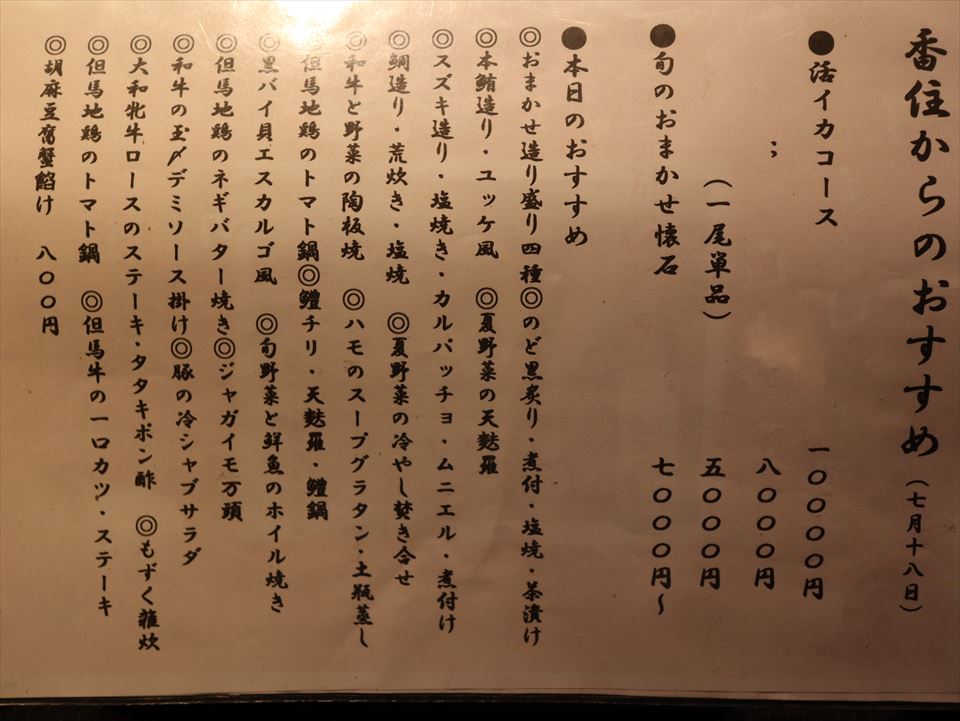 香住からのおすすめ(七月十八日)
●活イカコース 一〇〇〇〇円
; 八〇〇〇円
(一尾単品) 五〇〇〇円
●旬のおまかせ懐石 七〇〇〇円~
●本日のおすすめ
◎おまかせ造り盛り四種◎のど黒炙り・煮付・塩焼・茶漬け
◎本鮪造り・ユッケ風 ◎夏野菜の天麩羅
◎スズキ造り・塩焼き・カルパッチョ・ムニエル・煮付け
◎鯛造り・荒炊き・塩焼 ◎夏野菜の冷やし焚き合せ
◎和牛と野菜の陶板焼 ◎ハモのスープグラタン・土瓶蒸し
◎但馬地鶏のトマト鍋◎鱧チリ・天麩羅・鱧鍋
◎黒バイ貝エスカルゴ風 ◎旬野菜と鮮魚のホイル焼き
◎但馬地鶏のネギバター焼き◎ジャガイモ万頭
◎和牛の玉〆デミソース掛け◎豚の冷シャブサラダ
◎大和牝牛ロースのステーキ・タタキポン酢 ◎もずく雑炊
◎但馬地鶏のトマト鍋 ◎但馬牛の一口カツ・ステーキ
◎胡麻豆腐蟹餡け 八〇〇円